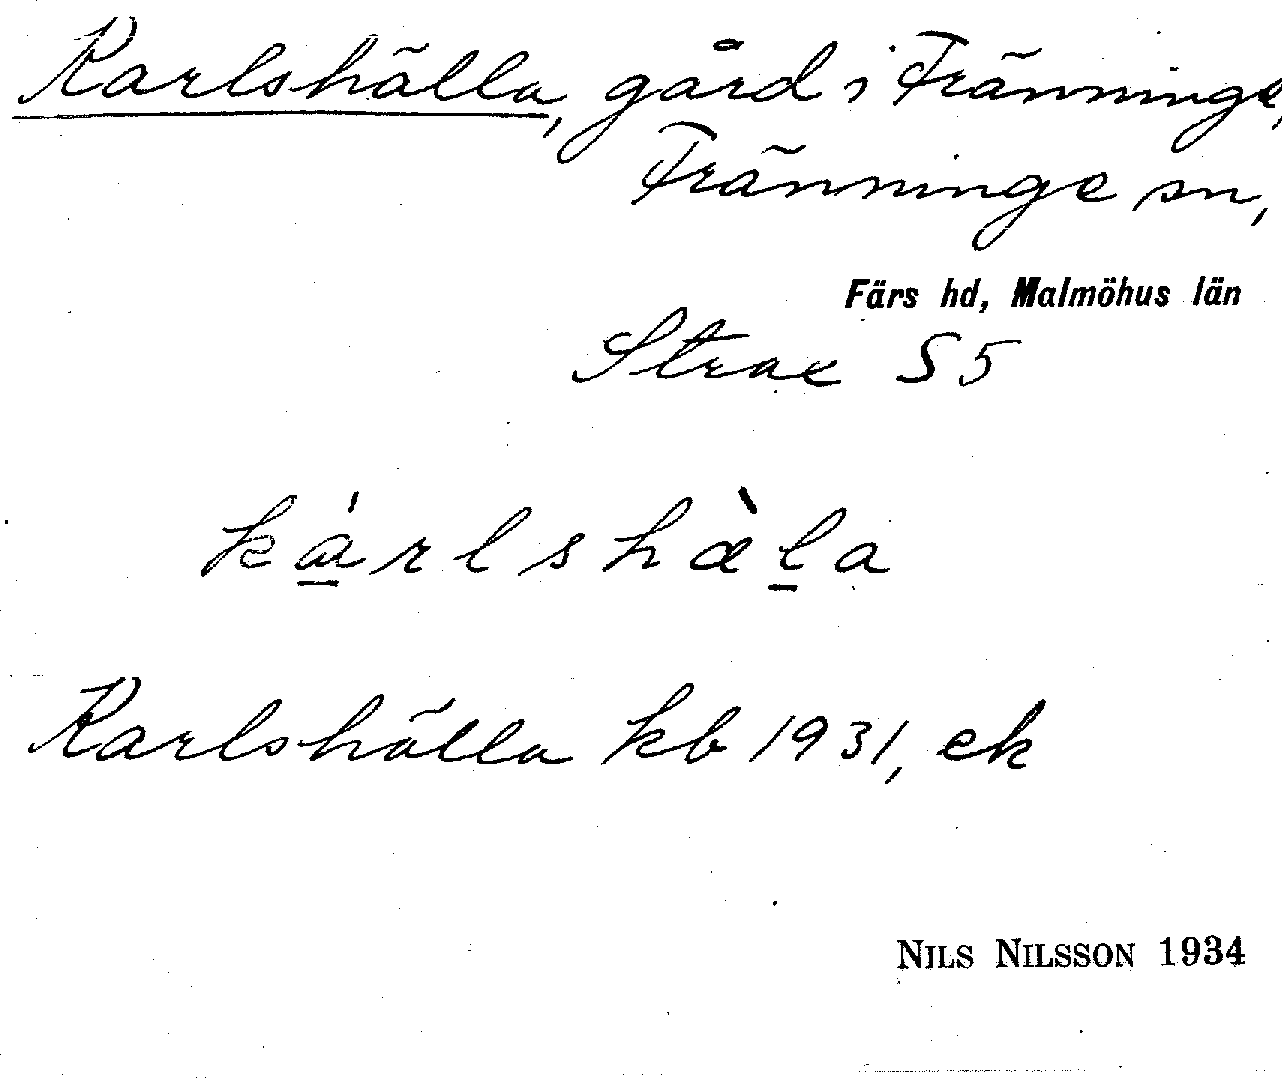 Karlshälla, gård i Fränninge,
Fränninge sn,
Färs hd, Malmöhus län
Strax S 5
ká̱rlshæ̀ḻa
Karlshälla kb 1931, ek
NILS NILSSON 1934